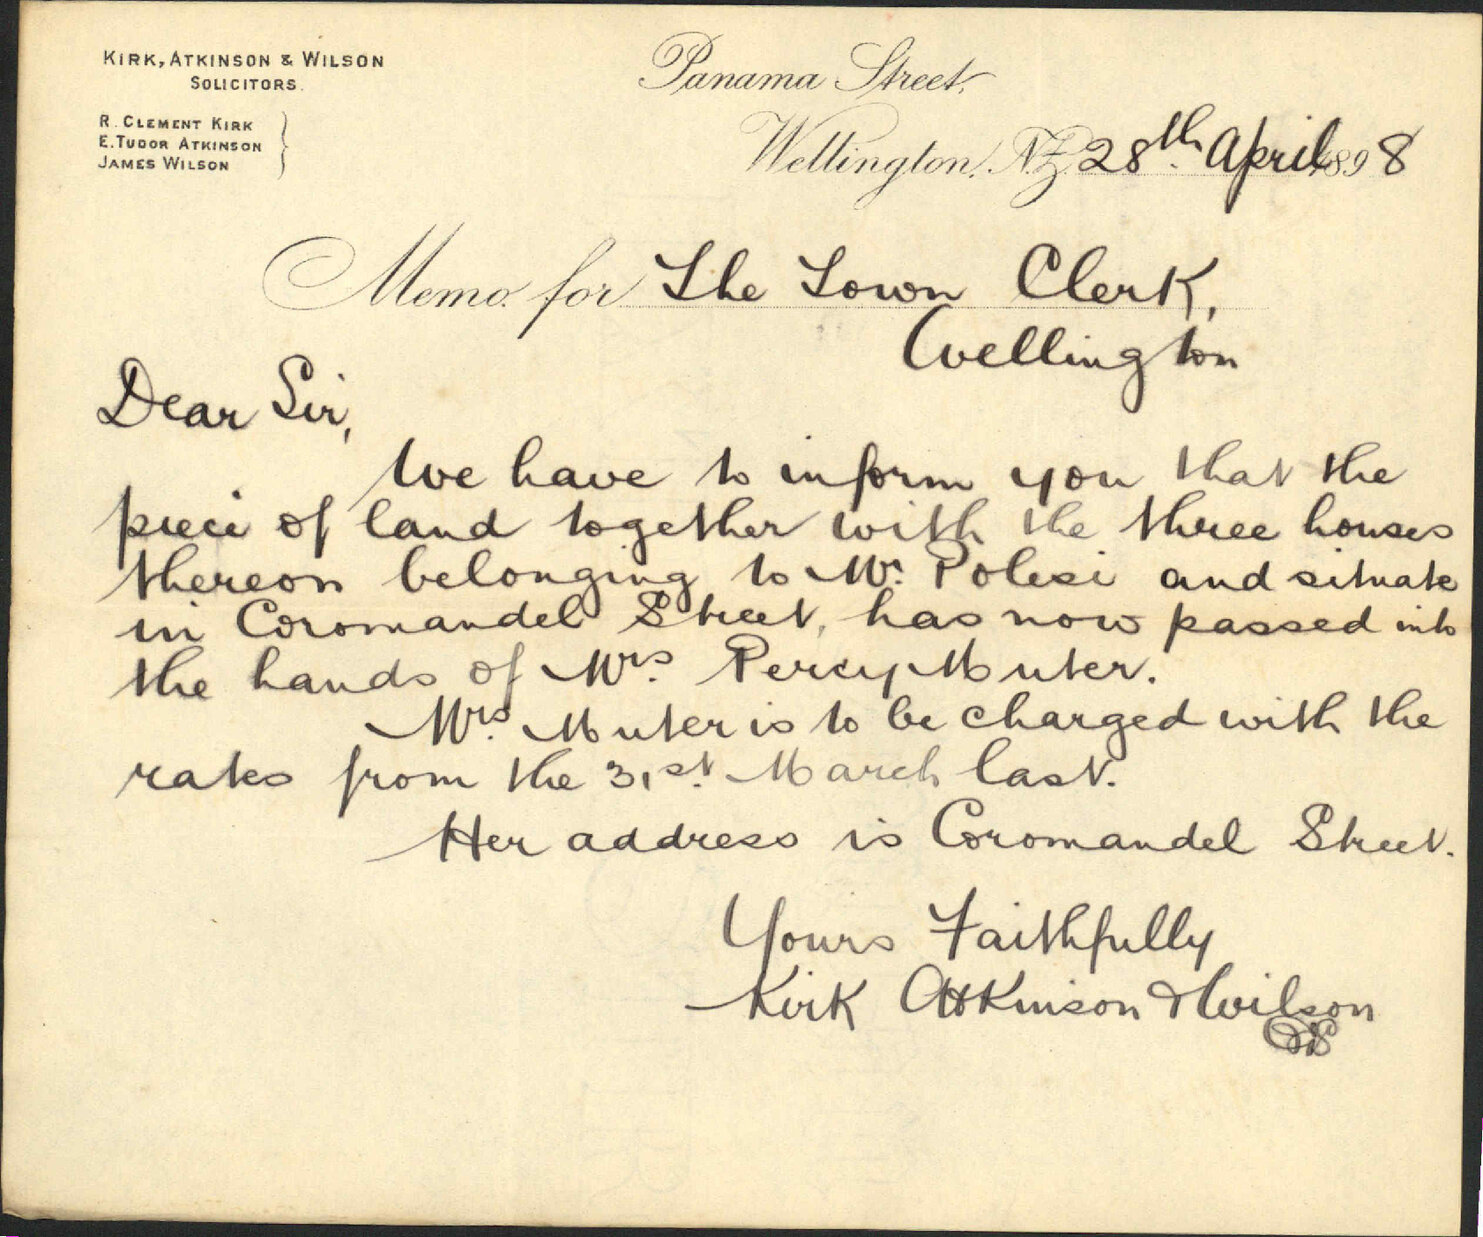 KIRK, ATKINSON & WILSON
SOLICITORS.
R. CLEMENT KIRK
E. TUDOR ATKINSON
JAMES WILSON
Panama Street,
Wellington, N.Z. 28th April 1898
Memo. for The Town Clerk,
Wellington
Dear Sir,
We have to inform you that the
piece of land together with the three houses
thereon belonging to Mr. Polesi and situate
in Coromandel Street, has now passed into
the hands of Mrs. Percy Muter.
Mrs. Muter is to be charged with the
rates from the 31st. March last.
Her address is Coromandel Street.
Yours Faithfully
Kirk Atkinson & Wilson